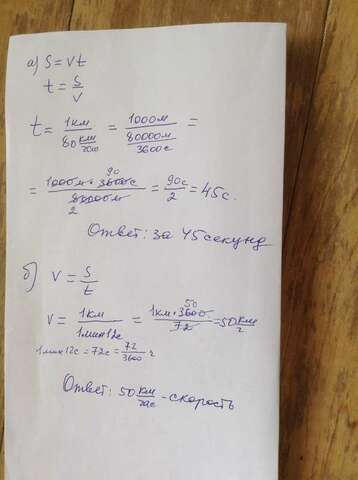 а) S = vt
t = S/v
t = 1км / 80 км/час = 1000м / 80000м/3600с =
= 1000м · 3600с 90 / 80000м 2 = 90с/2 = 45с.
Ответ: за 45 секунд
б) v = S/t
v = 1км / 1мин12с = 1км · 3600 50 / 72 = 50 км/ч
1мин12с = 72с = 72/3600 ч
Ответ: 50 км/час - скорость